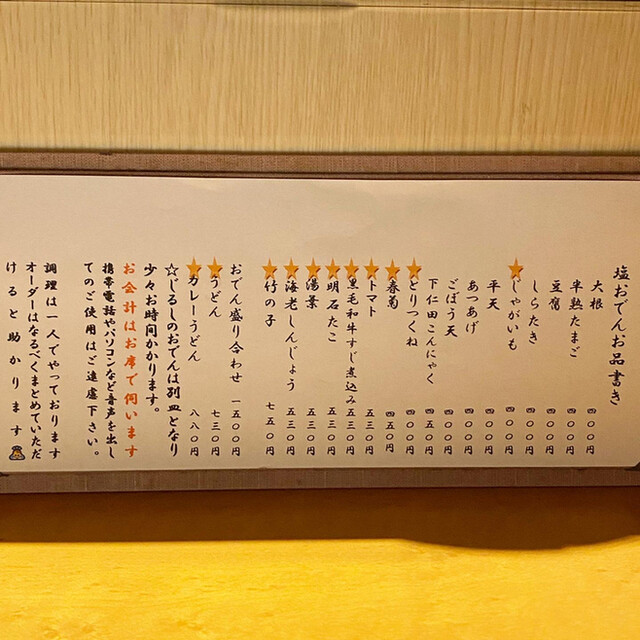 塩おでんお品書き
大根 四〇〇円
半熟たまご 四〇〇円
豆腐 四〇〇円
しらたき 四〇〇円
★じゃがいも 四〇〇円
平天 四〇〇円
あつあげ 四〇〇円
ごぼう天 四〇〇円
下仁田こんにゃく 四五〇円
★とりつくね 四〇〇円
★春菊 四五〇円
★トマト 五三〇円
★黒毛和牛すじ煮込み 五三〇円
★明石たこ 五三〇円
★湯葉 五三〇円
★海老しんじょう 五三〇円
★竹の子 七五〇円
おでん盛り合わせ 一五〇〇円
★うどん 七三〇円
★カレーうどん 八八〇円
☆じるしのおでんは別皿となり
少々お時間かかります。
お会計はお席で伺います
携帯電話やパソコンなど音声を出し
てのご使用はご遠慮下さい。
調理は一人でやっております
オーダーはなるべくまとめていただ
けると助かります